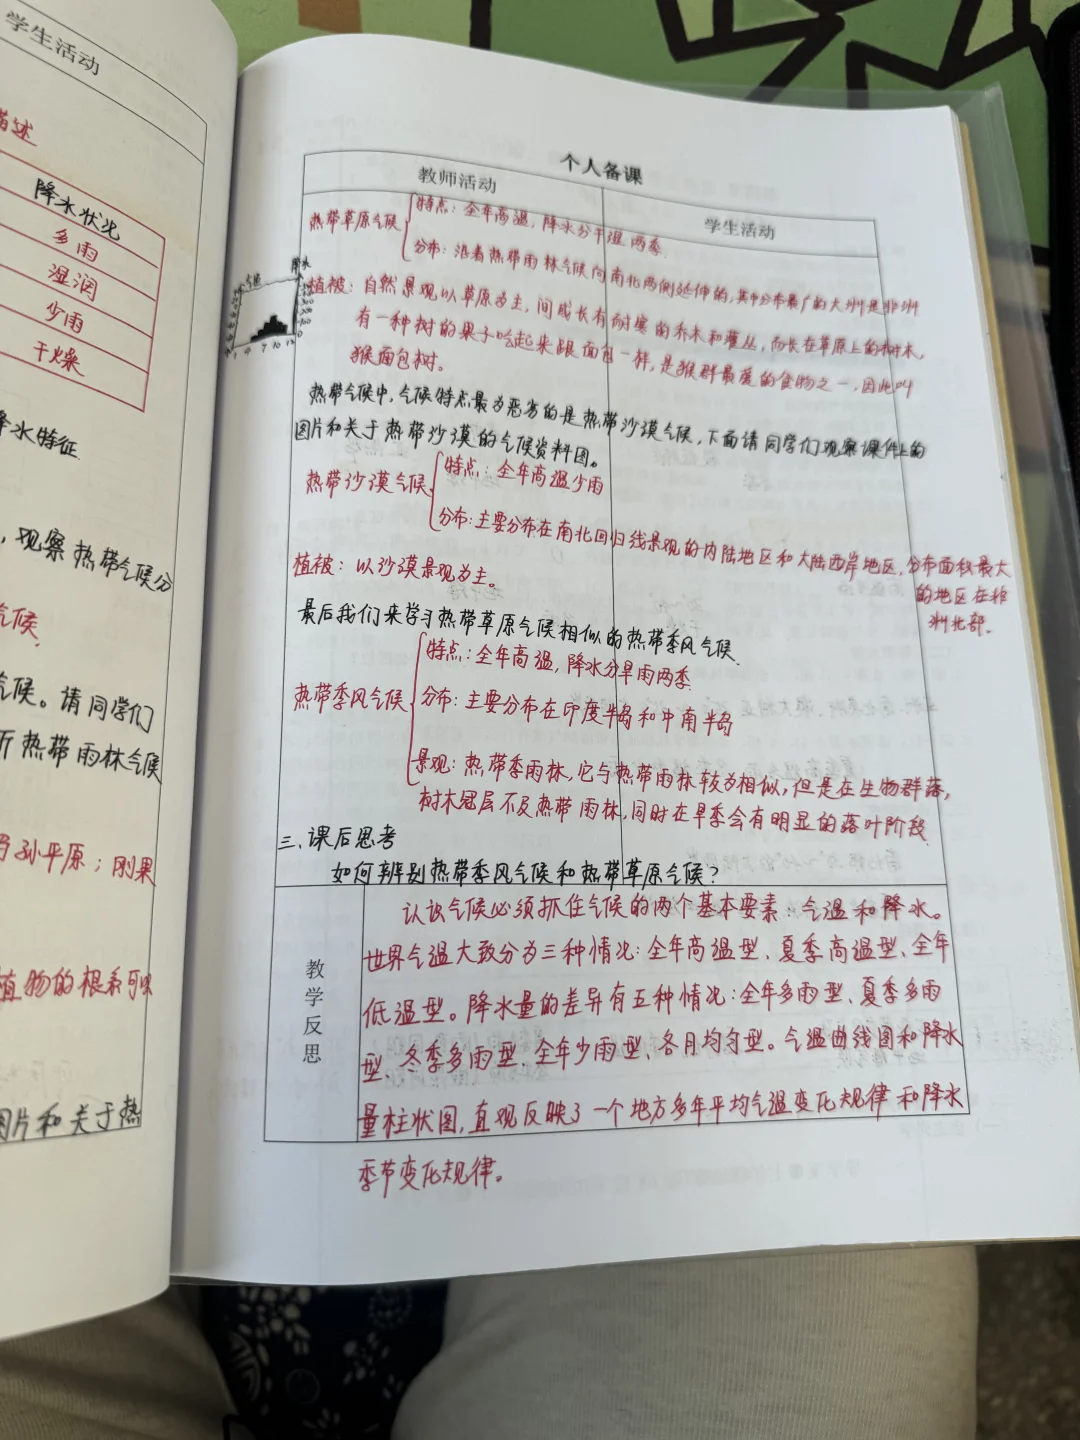 学生活动
描述
降水状况
多雨
湿润
少雨
干燥
降水特征
，观察热带气候分
气候
气候。请同学们
析热带雨林气候
马孙平原；刚果
植物的根系可以
图片和关于热
个人备课
教师活动
学生活动
热带草原气候
特点：全年高温，降水分干湿两季
分布：沿着热带雨林气候向南北两侧延伸的，其中分布最广的大洲是非洲
气温
降水
1 4 7 10 12
植被：自然景观以草原为主，间或长有耐寒的乔木和灌丛，而长在草原上的树木，
有一种树的果子吃起来跟面包一样，是猴群最爱的食物之一，因此叫
猴面包树。
热带气候中，气候特点最为恶劣的是热带沙漠气候，下面请同学们观察课件上的
图片和关于热带沙漠的气候资料图。
热带沙漠气候
特点：全年高温少雨
分布：主要分布在南北回归线景观的内陆地区和大陆西岸地区，分布面积最大
的地区在非
洲北部.
植被：以沙漠景观为主。
最后我们来学习热带草原气候相似的热带季风气候.
热带季风气候
特点：全年高温，降水分旱雨两季
分布：主要分布在印度半岛和中南半岛
景观：热带季雨林，它与热带雨林较为相似，但是在生物群落，
树木冠层不及热带雨林，同时在旱季会有明显的落叶阶段
三、课后思考
如何辨别热带季风气候和热带草原气候？
教学反思
认识气候必须抓住气候的两个基本要素：气温和降水。
世界气温大致分为三种情况：全年高温型、夏季高温型、全年
低温型。降水量的差异有五种情况：全年多雨型、夏季多雨
型、冬季多雨型、全年少雨型、各月均匀型。气温曲线图和降水
量柱状图，直观反映了一个地方多年平均气温变化规律和降水
季节变化规律。